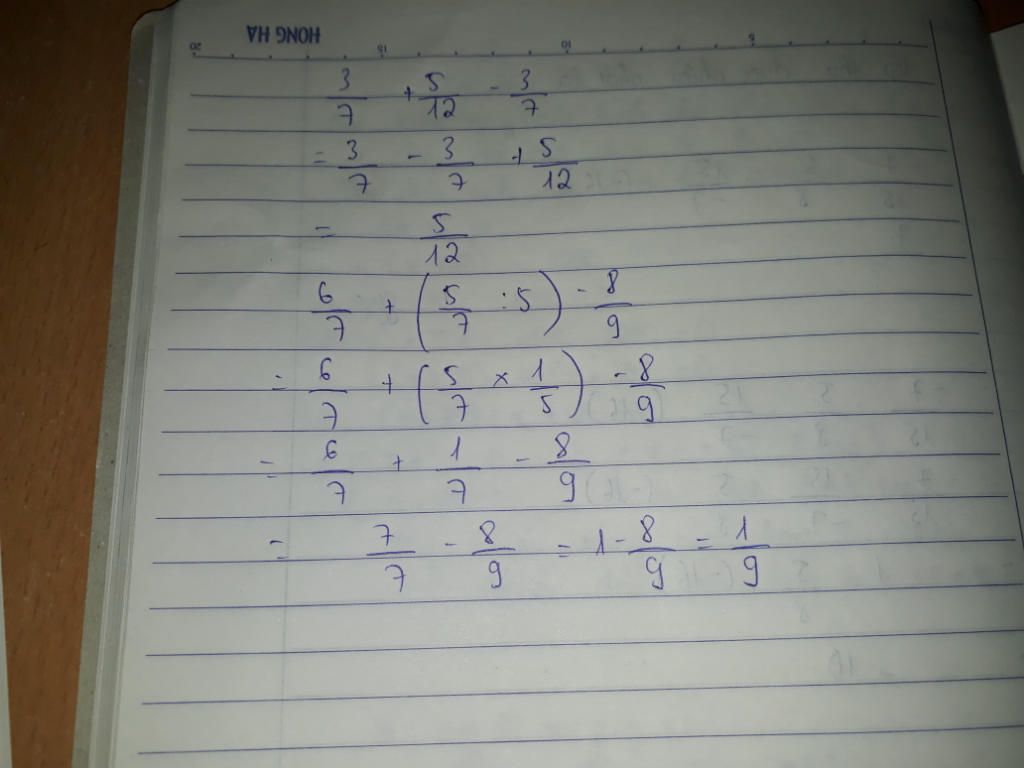 HONG HA
20 15 10 5
3/7 + 5/12 - 3/7
= 3/7 - 3/7 + 5/12
= 5/12
6/7 + (5/7 : 5) - 8/9
= 6/7 + (5/7 × 1/5) - 8/9
= 6/7 + 1/7 - 8/9
= 7/7 - 8/9 = 1 - 8/9 = 1/9